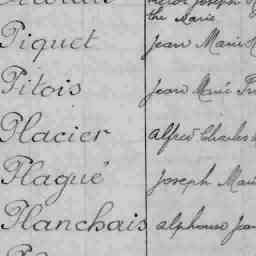 the Marie
Piquet Jean Marie
Pitois Jean Marie
Placier Alfred Charles
Plagué Joseph Marie
Planchais alphonse Jean